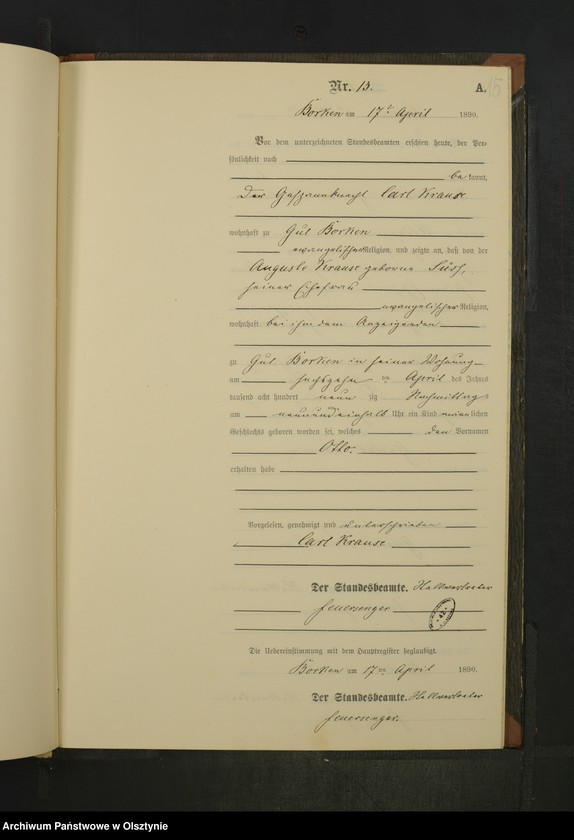 Nr. 13.
A. 15
Borken am 17ten April 1890.
Vor dem unterzeichneten Standesbeamten erschien heute, der Per-
sönlichkeit nach
be kannt,
Der Gespannknecht Carl Krause
wohnhaft zu Gut Borken
evangelischer Religion, und zeigte an, daß von der
Auguste Krause geborne Süss,
seiner Ehefrau
evangelischer Religion,
wohnhaft bei ihm dem Anzeigenden
zu Gut Borken in seiner Wohnung
am sechszehn ten April des Jahres
tausend acht hundert neun zig Nachmittags
um neunundeinhalb Uhr ein Kind männlichen
Geschlechts geboren worden sei, welches den Vornamen
Otto.
erhalten habe
Vorgelesen, genehmigt und unterschrieben
Carl Krause
Der Standesbeamte.
Feuersenger
Die Uebereinstimmung mit dem Hauptregister beglaubigt.
Borken am 17ten April 1890.
Der Standesbeamte.
Feuersenger.
Archiwum Państwowe w Olsztynie